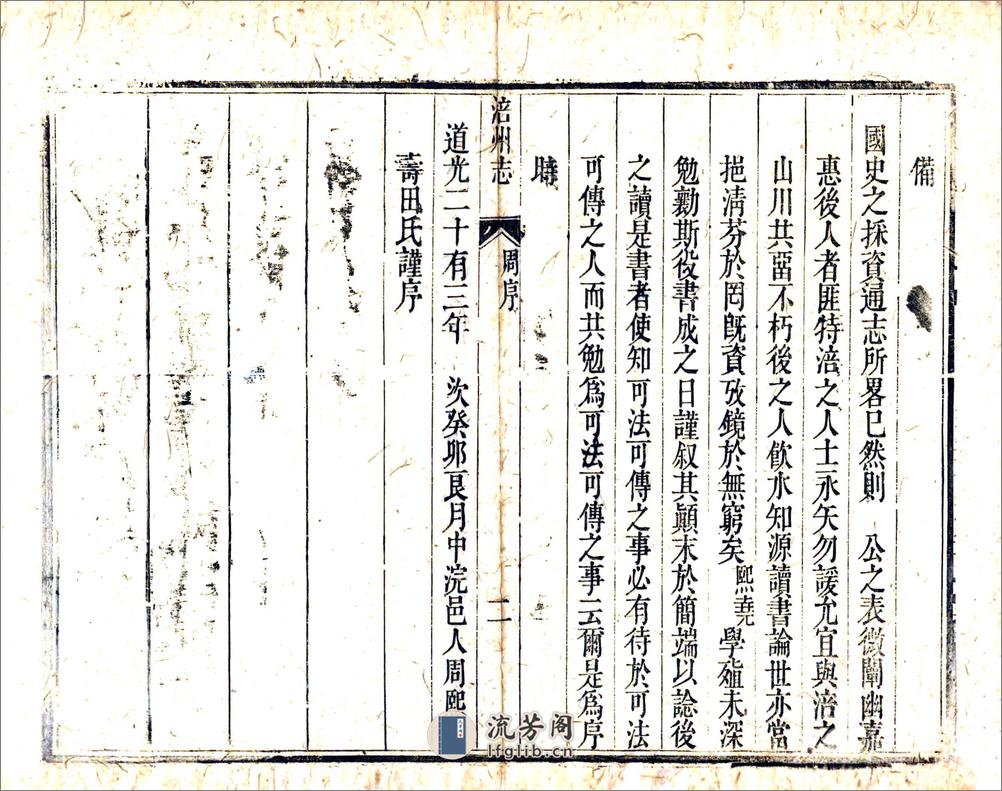 備
國史之採資通志所畧已然則　公之表微闡幽嘉
惠後人者匪特涪之人士永矢勿諼允宜與涪之
山川共畱不朽後之人飲水知源讀書論世亦當
挹淸芬於罔旣資攷鏡於無窮矣熙堯學殖未深
勉勷斯役書成之日謹叙其顚末於簡端以諗後
之讀是書者使知可法可傳之事必有待於可法
可傳之人而共勉爲可法可傳之事云爾是爲序
時
涪州志
周序
二
道光二十有三年　次癸卯艮月中浣邑人周熙
壽田氏謹序
流芳阁
lfglib.cn